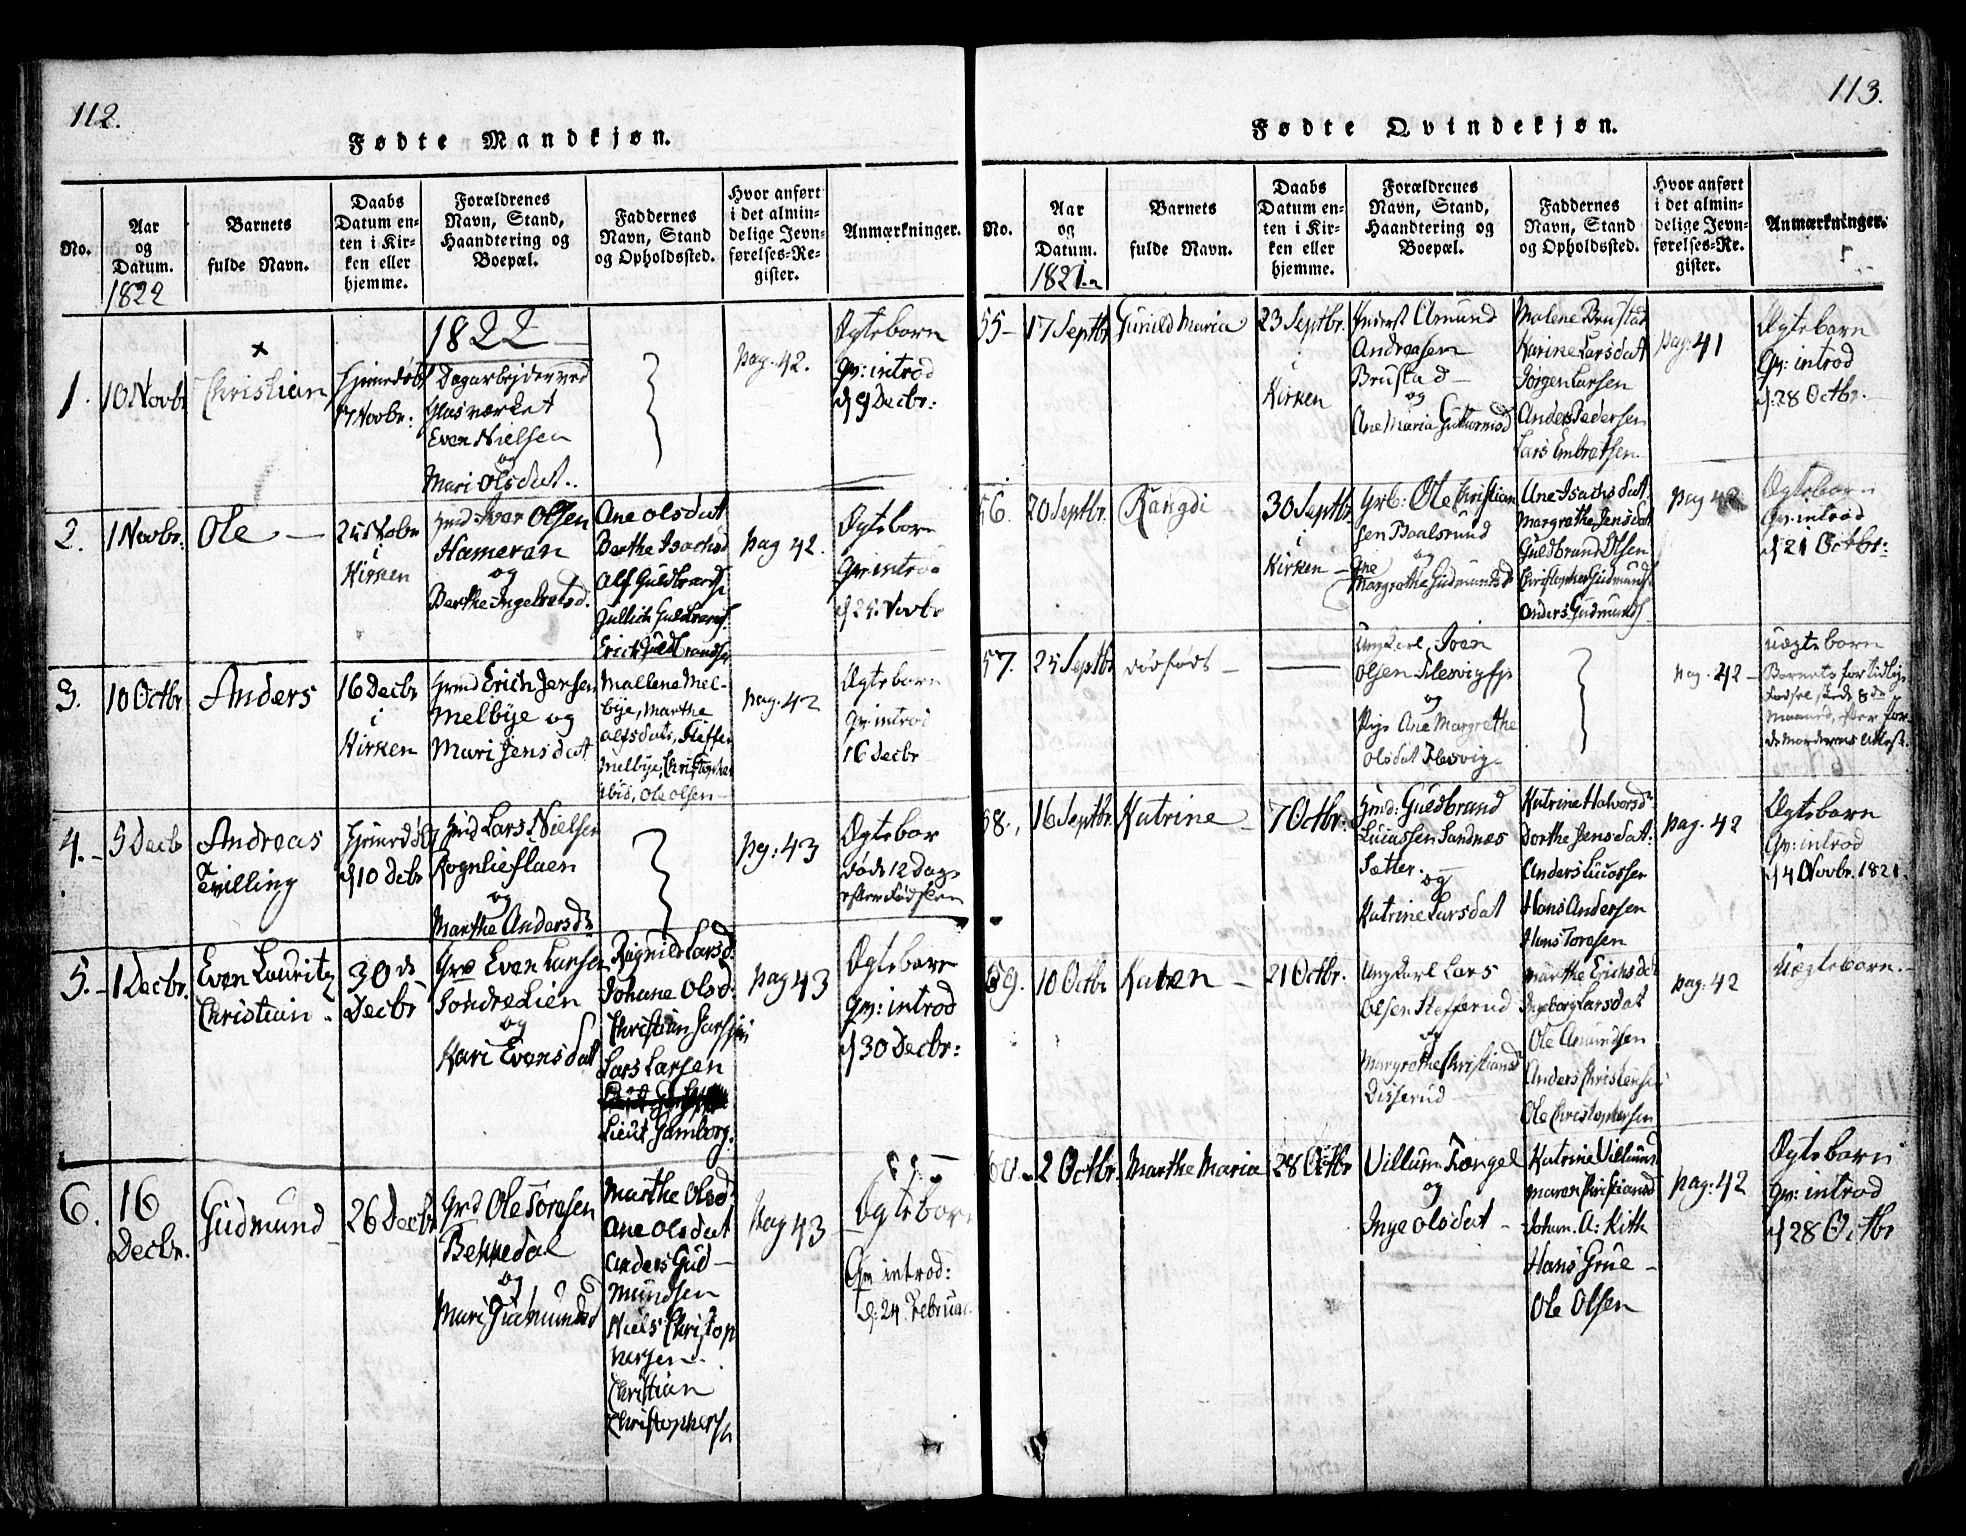 112.
Fødte Mandkjøn.
No.
Aar
og
Datum.
1822
Barnets
fulde Navn.
Daabs
Datum en-
ten i Kir-
ken eller
hjemme.
Forældrenes
Navn, Stand,
Haandtering og
Boepæl.
Faddernes
Navn, Stand
og Opholdssted.
Hvor anført
i det almin-
delige Jevn-
førelses-Re-
gister.
Anmærkninger.
1822
1.
10 Novbr
Christian
Hjemedøbt
17 Novbr:
Dagarbejder ved
Glasværket
Even Nielsen
og
Mari Olsdat.
pag. 42.
Ægteborn
Qv: introd
d 9 Decbr:
2.
1 Novbr:
Ole
25 Novbr
i
Kirken
Gmd Iver Olsen
Hameran
og
Berthe Ingebretsd.
Ane Olsdat
Berthe Isachsd
Alf Guldbrands
Gullich Guldbrands
Erich Guldbrands
pag 42.
Ægteborn
Qv: introd
d 25 Novbr
3.
10 Octbr
Anders
16 Decbr
i
Kirken
Gmd Erich Jensen
Melbye og
Mari Jensdat
Mallene Mel-
bye, Marthe
Alfsdat, Steffen
Melbye, Christopher
Ibid, Ole Olsen
pag. 42
Ægteborn
Qv: introd
16 Decbr
4.
5 Decbr
Andreas
Tvilling
Hjemedøbt
d 10 Decbr
Gmd Lars Nielsen
Rognlieflaen
og
Marthe Andersd
pg: 43
Ægtebor
døde 12 Dage
efter Fødslen
5.
1 Decbr.
Even Lauritz
Christian
30 de
Decbr
Grd Even Larsen
Søndre Lien
og
Kari Evensdat
Ragnild Larsd:
Johane Olsd:
Christian
Lars Larsen
Lieut Gamborg.
pag 43
Ægteborn
Qv: introd
d 30 Decbr:
6.
16
Decbr.
Gudmund
26 Decbr
Grd Ole Toresen
Bekkedal
og
Mari Gudmundsd
Marthe Olsd:
Ane Olsdat
Anders Gud-
mundsen
Niels Christop
hersen
Christian
Christophersen
pag 43
Ægteborn
Qv introd:
d: 24 Februar
113.
Fødte Qvindekjøn.
No.
Aar
og
Datum.
1821
Barnets
fulde Navn.
Daabs
Datum en-
ten i Kir-
ken eller
hjemme.
Forældrenes
Navn, Stand,
Haandtering og
Boepæl.
Faddernes
Navn, Stand
og Opholdssted.
Hvor anført
i det almin-
delige Jevn-
førelses-Re-
gister.
Anmærkninger.
55
17 Septbr
Gunild Maria
23 Septbr.
i
Kirken
Inderst Amund
Andreasen
Brustad
og
Ane Maria Guttormsd
Malene Brustad
Karine Larsdat
Jørgen Larsen
Anders Pedersen
Lars Embretsen
pag: 41
Ægteborn
Qv: introd
d: 28 Octbr.
56.
20 Septbr.
Rangdi
30 Septbr
i
Kirken
Grb: Ole Christian
sen Baalsrund
og
Ane
Margrethe Gudmundsd
Ane Isachsdat
Margrethe Jensdat
Guldbrand Olsen
Christopher Gudmunds
Anders Gudmunds
pag 42
Ægteborn
Qv: introd
d 21 Octbr:
57.
25 Septbr
dødfødt
Ungkarl Iver
Olsen Slesvig
og
Pige Ane Margrethe
Olsdat Slesvig
pag. 42
Uægteborn
Barnets for tidlige
8 de
Maaned, efter For
58.
16 Septbr.
Katrine
7 Octbr:
Gmd: Guldbrand
Lucassen Sandnes
Sætter.
og
Katrine Larsdat
Katrine Halvorsd:
Dorthe Jensdat:
Anders Lucassen
Hans Andersen
Hans Toresen
pag. 42
Ægteborn
Qv: introd
d 4 Novbr. 1821.
59.
10 Octbr
Karen
21 Octbr:
Ungkarl Lars
Olsen Hefferud
og
Margrethe Christiansd
Disserud
Marthe Erichsdat
Ingeborg Larsdat
Ole Amundsen
Anders Christensen
Ole Christophersen
pag: 42
Uægteborn.
60.
2 Octbr.
Marthe Maria
28 Octbr
Villum Fængel
og
Inge Olsdat
Katrine Villumsd
Maren Christiansd
Johan. A: Kith
Hans Grue
Ole Olsen
pag: 42
Ægteborn
Qv: introd
d 28 Octbr